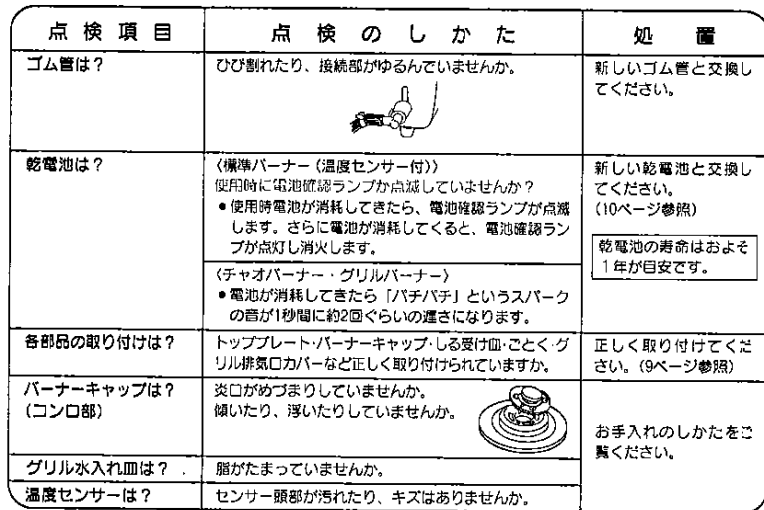 点検項目
点検のしかた
処置
ゴム管は？
ひび割れたり、接続部がゆるんでいませんか。
新しいゴム管と交換し
てください。
乾電池は？
〈標準バーナー（温度センサー付）〉
使用時に電池確認ランプが点滅していませんか？
●使用時電池が消耗してきたら、電池確認ランプが点滅
します。さらに電池が消耗してくると、電池確認ラン
プが点灯し消火します。
〈チャオバーナー・グリルバーナー〉
●電池が消耗してきたら「パチパチ」というスパーク
の音が1秒間に約2回ぐらいの遅さになります。
新しい乾電池と交換し
てください。
(10ページ参照)
乾電池の寿命はおよそ
1年が目安です。
各部品の取り付けは？
トッププレート・バーナーキャップ・しる受け皿・ごとく・グ
リル排気口カバーなど正しく取り付けられていますか。
正しく取り付けてくだ
さい。(9ページ参照)
バーナーキャップは？
(コンロ部)
炎口がめづまりしていませんか。
傾いたり、浮いたりしていませんか。
お手入れのしかたをご
覧ください。
グリル水入れ皿は？
脂がたまっていませんか。
温度センサーは？
センサー頭部が汚れたり、キズはありませんか。